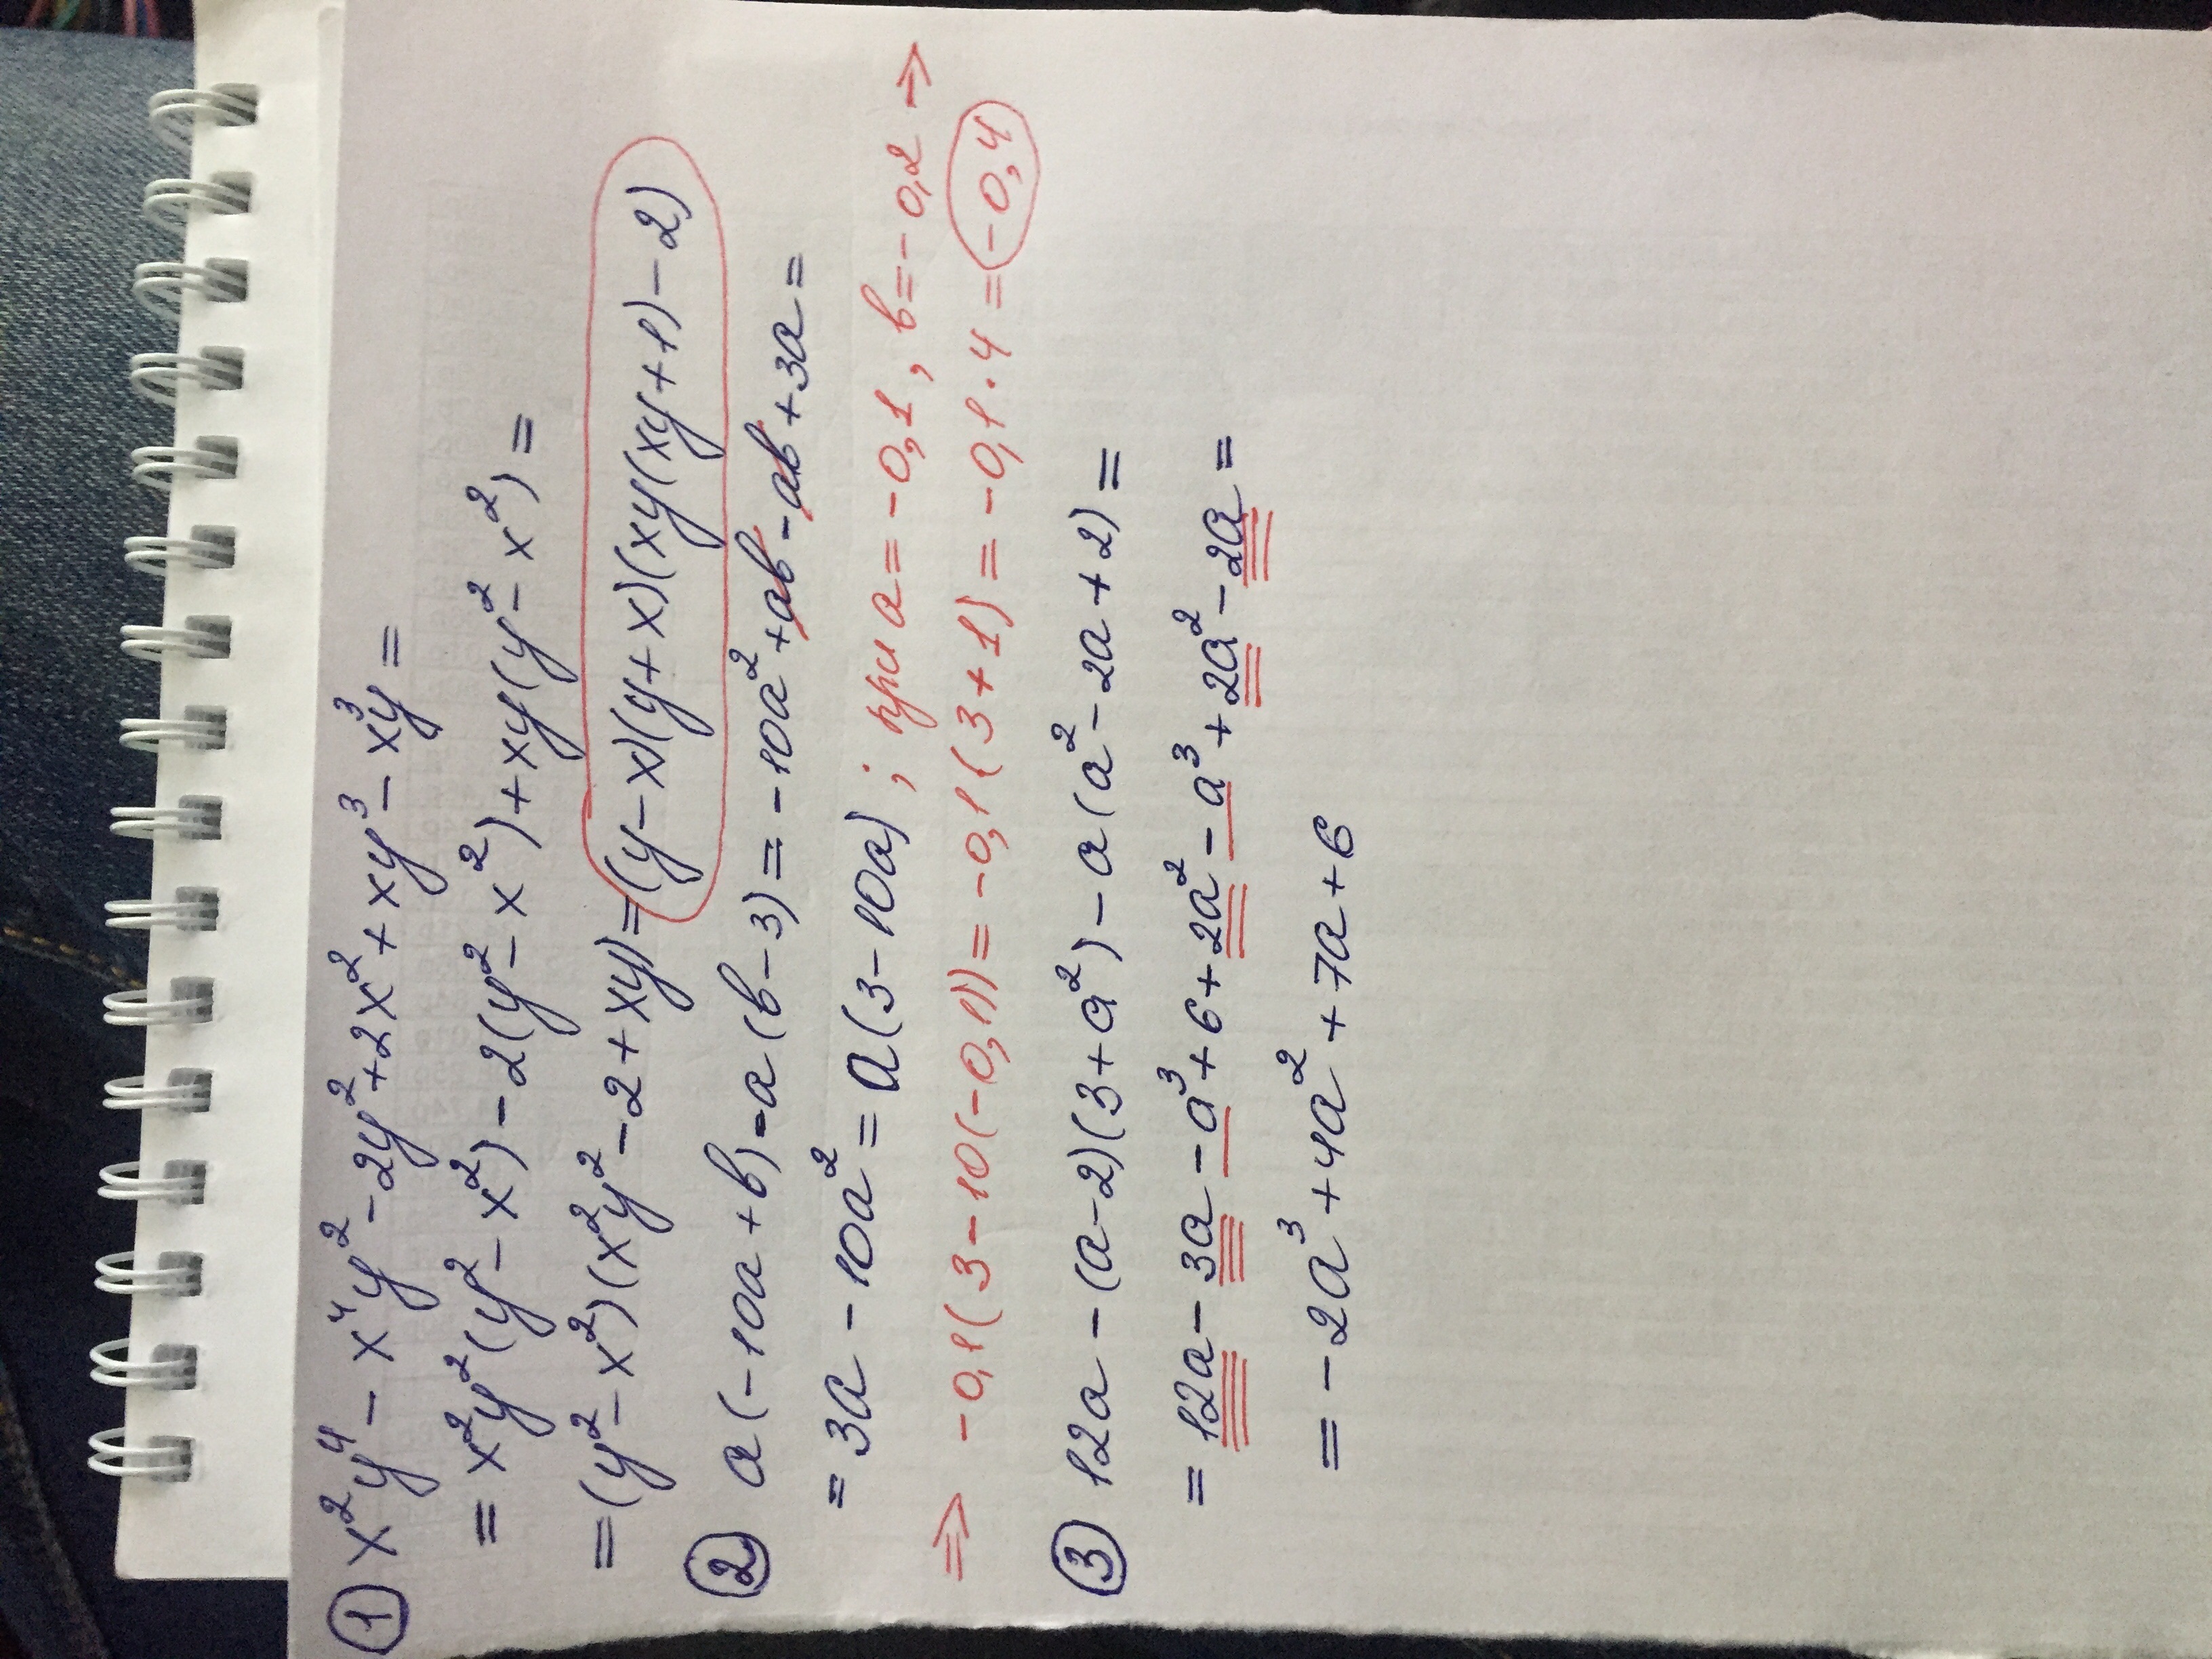 ① x²y⁴ - x⁴y² - 2y² + 2x² + xy³ - x³y =
= x²y²(y² - x²) - 2(y² - x²) + xy(y² - x²) =
= (y² - x²)(x²y² - 2 + xy) = (y - x)(y + x)(xy(xy + 1) - 2)
② a(-10a + b) - a(b - 3) = -10a² + ab - ab + 3a =
= 3a - 10a² = a(3 - 10a) ; при a = -0,1 , b = -0,2 ⇒
⇒ -0,1(3 - 10(-0,1)) = -0,1(3 + 1) = -0,1 · 4 = -0,4
③ 12a - (a - 2)(3 + a²) - a(a² - 2a + 2) =
= 12a - 3a - a³ + 6 + 2a² - a³ + 2a² - 2a =
= -2a³ + 4a² + 7a + 6